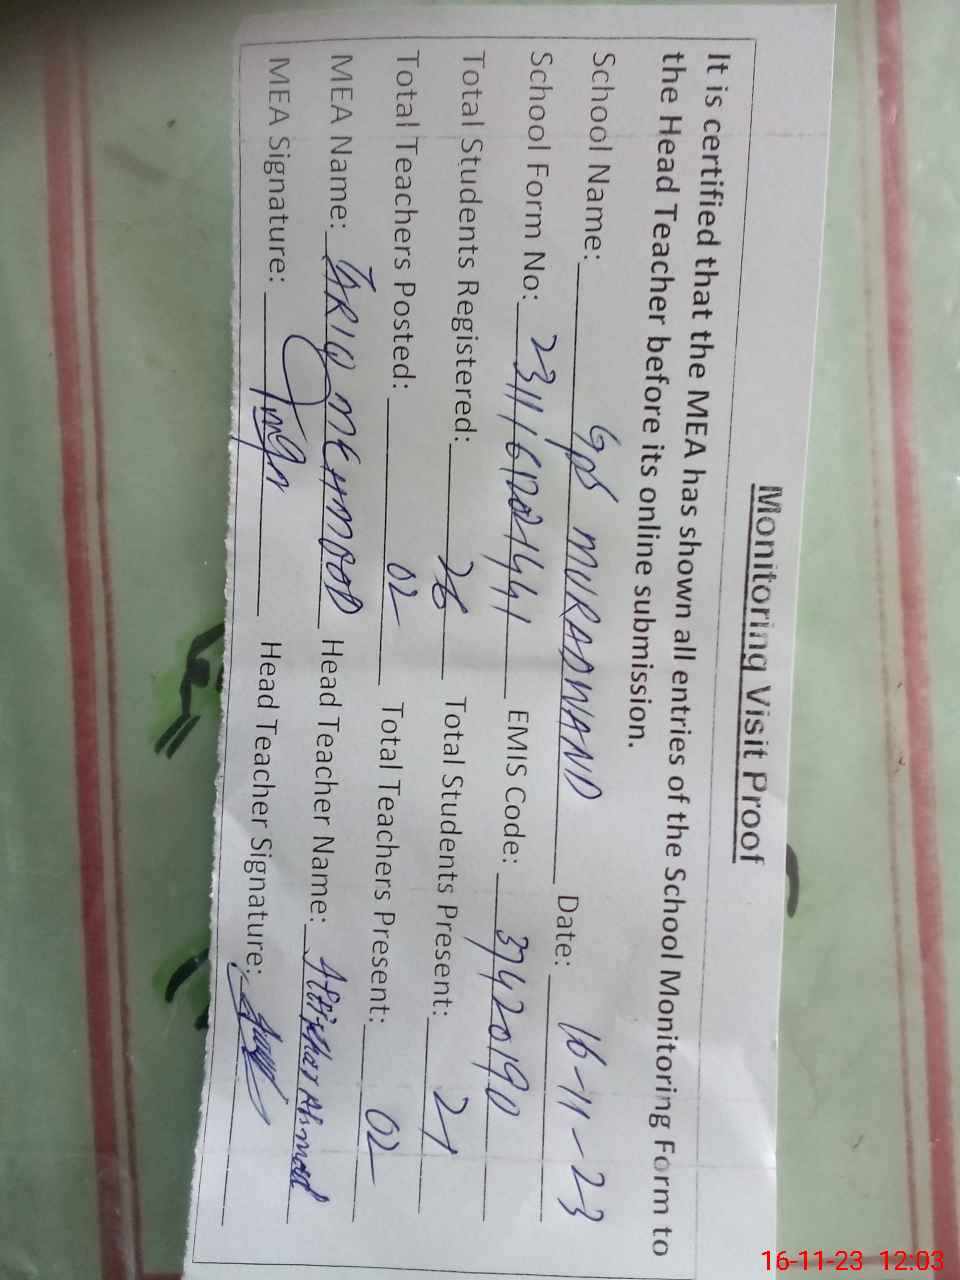 Monitoring Visit Proof
It is certified that the MEA has shown all entries of the School Monitoring Form to
the Head Teacher before its online submission.
School Name: GPS MURADWAND Date: 16-11-23
School Form No: EMIS Code: 37420190
Total Students Registered: 26 Total Students Present: 21
Total Teachers Posted: 02 Total Teachers Present: 02
MEA Name: TARIQ MEHMOOD Head Teacher Name: Ahmad
MEA Signature: Head Teacher Signature:
16-11-23 12:03